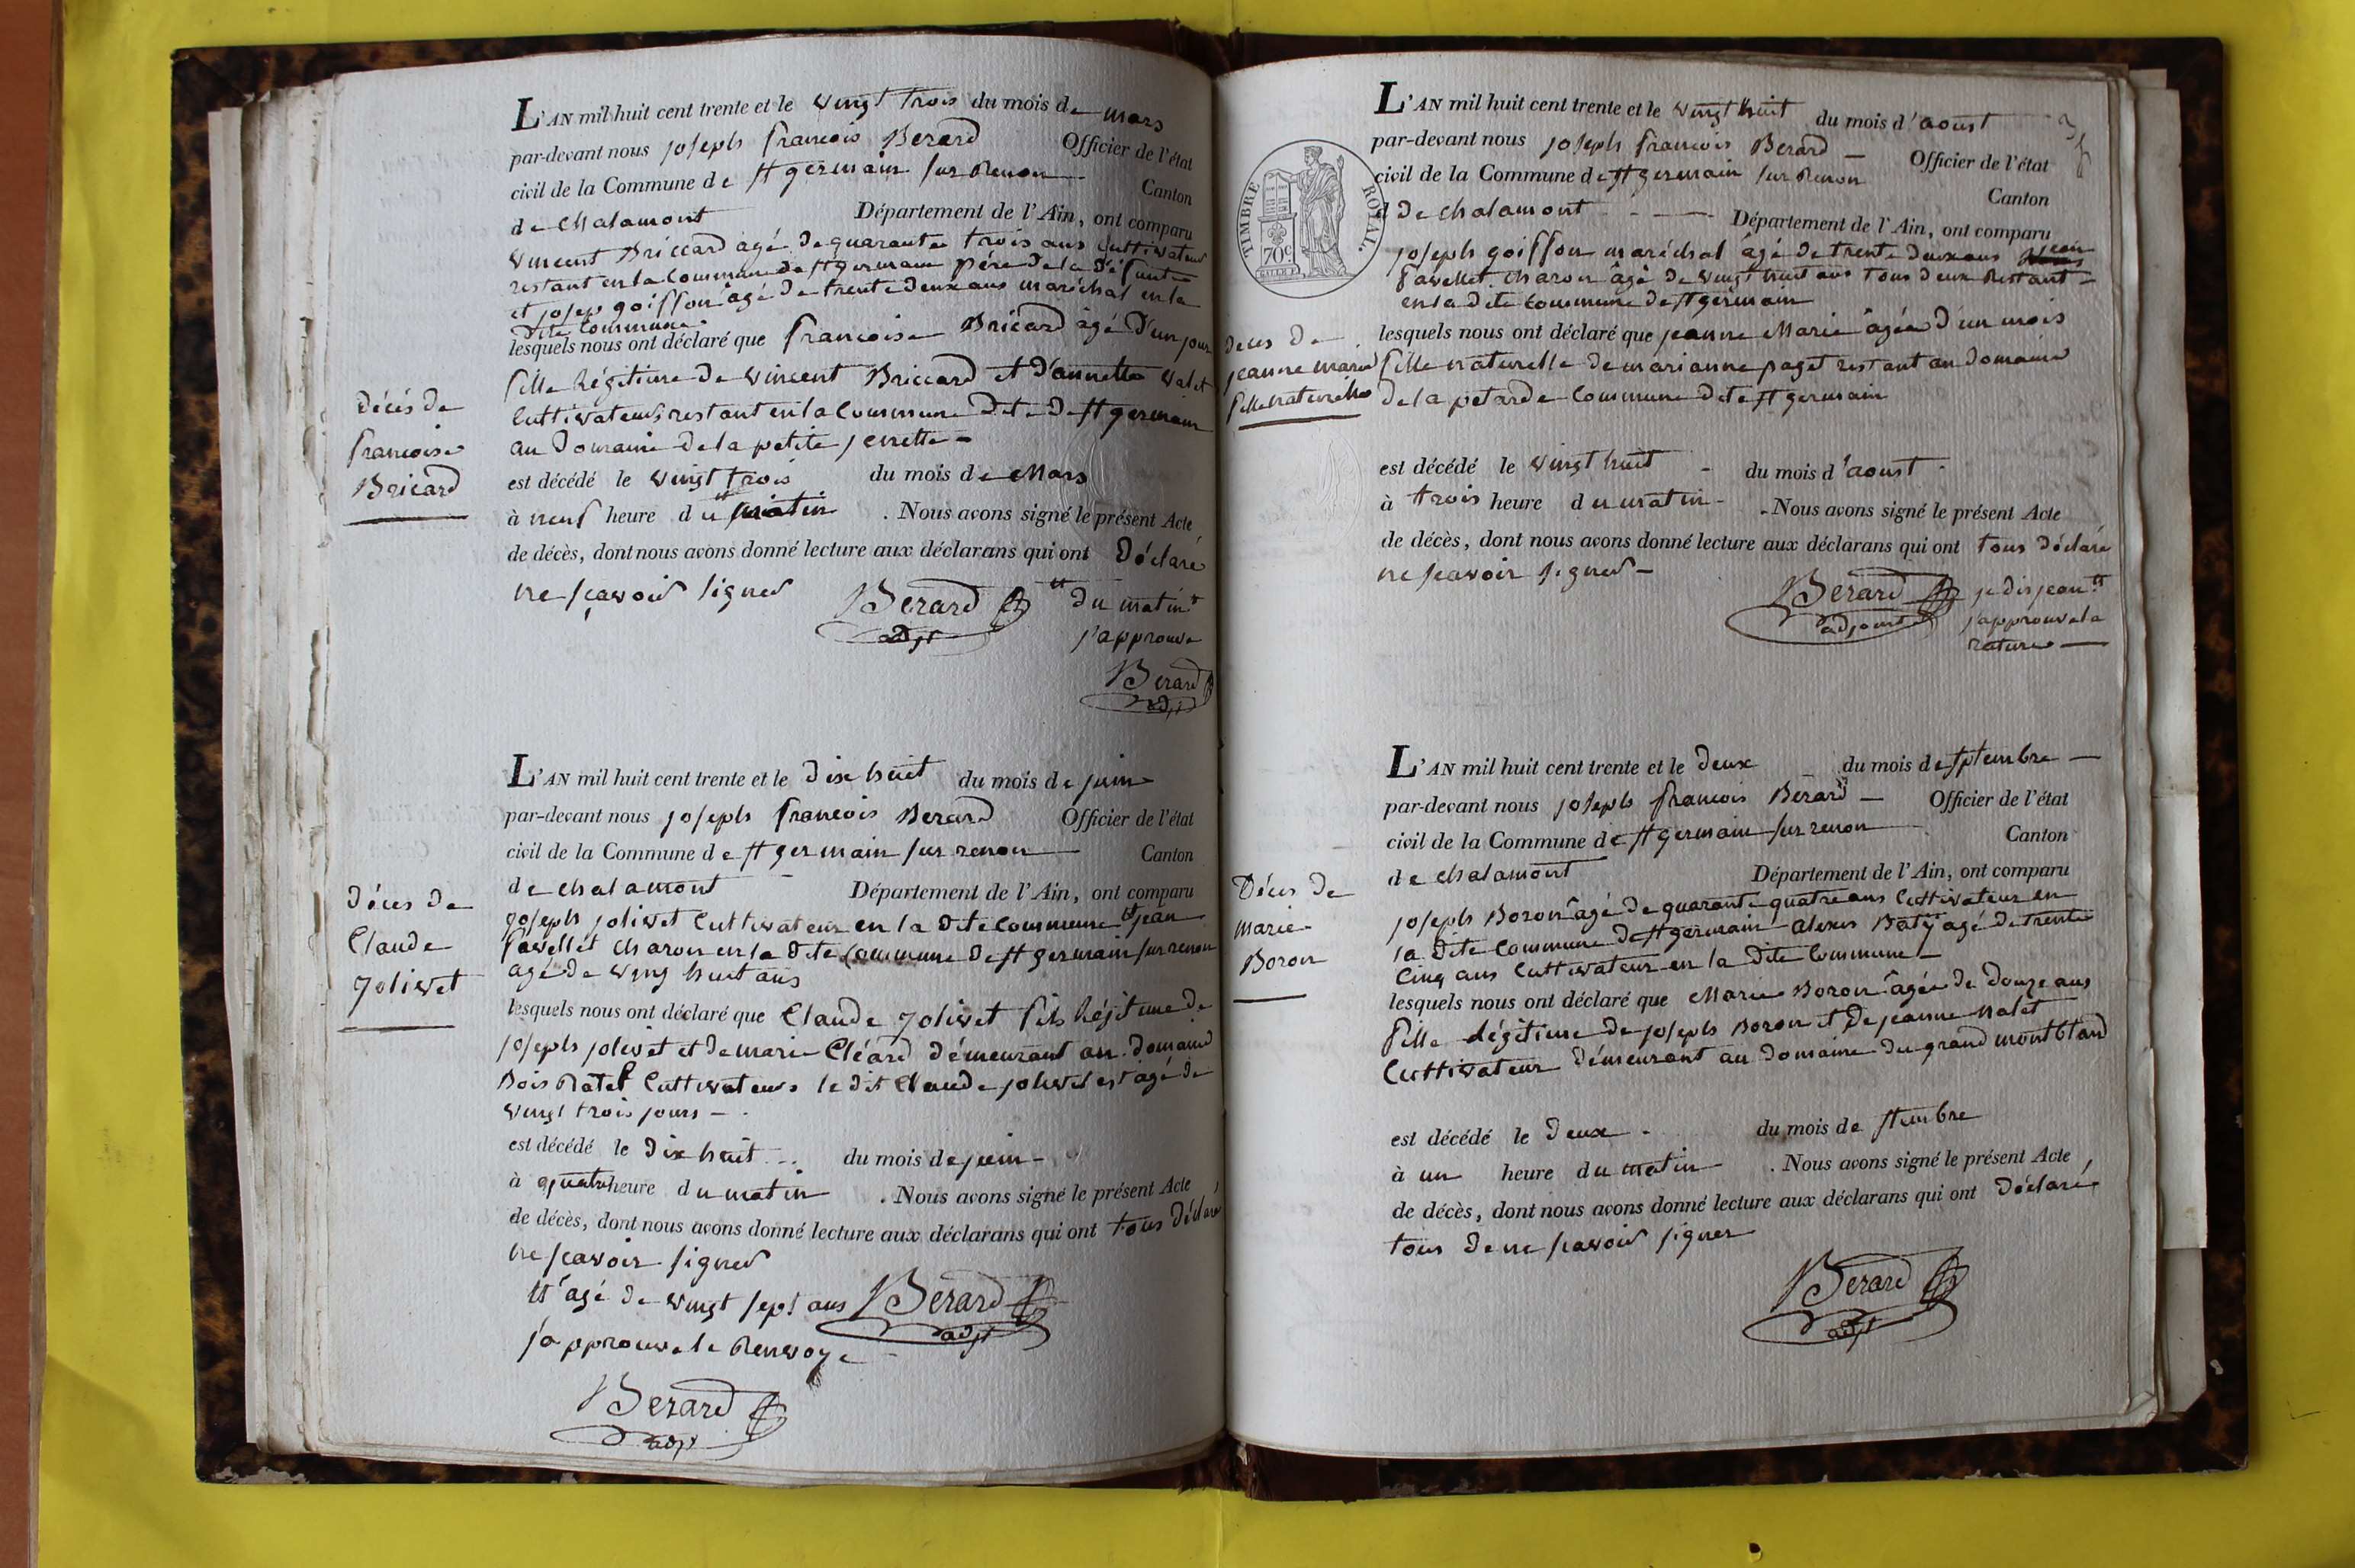 L'AN mil huit cent trente et le vingt trois du mois de mars
par-devant nous joseph francois Berard Officier de l'état
civil de la Commune de st germain sur Renon Canton
de chalamont Département de l'Ain, ont comparu
vincent Briccard agé de quarante trois ans cultivateur
restant en la commune de st germain père de la défunte
et josep goiffon agé de trente deux ans maréchal en la
dite commune
lesquels nous ont déclaré que francoise Bricard âgé d'un jour
fille légitime de vincent Briccard et d'annette valet
cultivateurs restant en la commune dite de st germain
au domaine de la petite
Décés de
francoise
Bricard
est décédé le vingt trois du mois de Mars
à neuf heure du matin . Nous avons signé le présent Acte
de décès, dont nous avons donné lecture aux déclarans qui ont déclaré
ne sçavoir signer Berard du matin
adjt j'approuve
Berard
adjt
L'AN mil huit cent trente et le dix huit du mois de juin
par-devant nous joseph francois Berard Officier de l'état
civil de la Commune de st germain sur renon Canton
de chalamont Département de l'Ain, ont comparu
joseph jolivet cultivateur en la dite commune jean
favellet charon en la dite commune de st germain sur renon
agé de ving huit ans
décès de
Claude
jolivet
lesquels nous ont déclaré que Claude jolivet fils légitime de
joseph jolivet et de marie Cléard démeurant au domaine
Bois cultivateurs le dit Claude jolivet est agé de
vingt trois jours
est décédé le dix huit du mois de juin
à quatre heure du matin . Nous avons signé le présent Acte
de décès, dont nous avons donné lecture aux déclarans qui ont tous déclaré
ne scavoir signer
agé de vingt sept ans Berard
j'approuve le Renvoye adjt
Berard
adjt
L'AN mil huit cent trente et le vingt huit du mois d'aoust
par-devant nous joseph francois Berard Officier de l'état
civil de la Commune de st germain sur Renon Canton
d de chalamont Département de l'Ain, ont comparu
TIMBRE ROYAL.
70c
joseph goiffon maréchal âgé de trente deux ans jean
favellet charon âgé de vingt huit ans tous deux Restant
en la dite commune de st germain
décés de
jeanne marie
fille naturelle
lesquels nous ont déclaré que jeanne Marie âgée d'un mois
fille naturelle de marianne paget restant au domaine
de la petarde commune dite st germain
est décédé le vingt huit du mois d'aoust
à trois heure du matin . Nous avons signé le présent Acte
de décès, dont nous avons donné lecture aux déclarans qui ont tous déclaré
ne scavoir signer
Berard je dis jean
adjoint j'approuve la
rature
L'AN mil huit cent trente et le deux du mois de sptembre
par-devant nous joseph francois Berard Officier de l'état
civil de la Commune de st germain sur renon Canton
de chalamont Département de l'Ain, ont comparu
joseph Boron âgé de quarante quatre ans cultivateur en
la dite commune de st germain alexis Baty agé de trente
cinq ans cultivateur en la dite commune
Décès de
marie
Boron
lesquels nous ont déclaré que Marie Boron âgée de douze ans
fille légitime de joseph Boron et de jeanne
cultivateur démeurant au domaine du grand montbland
est décédé le deux du mois de stembre
à un heure du matin . Nous avons signé le présent Acte
de décès, dont nous avons donné lecture aux déclarans qui ont déclaré
tous de ne scavoir signer
Berard
adjt